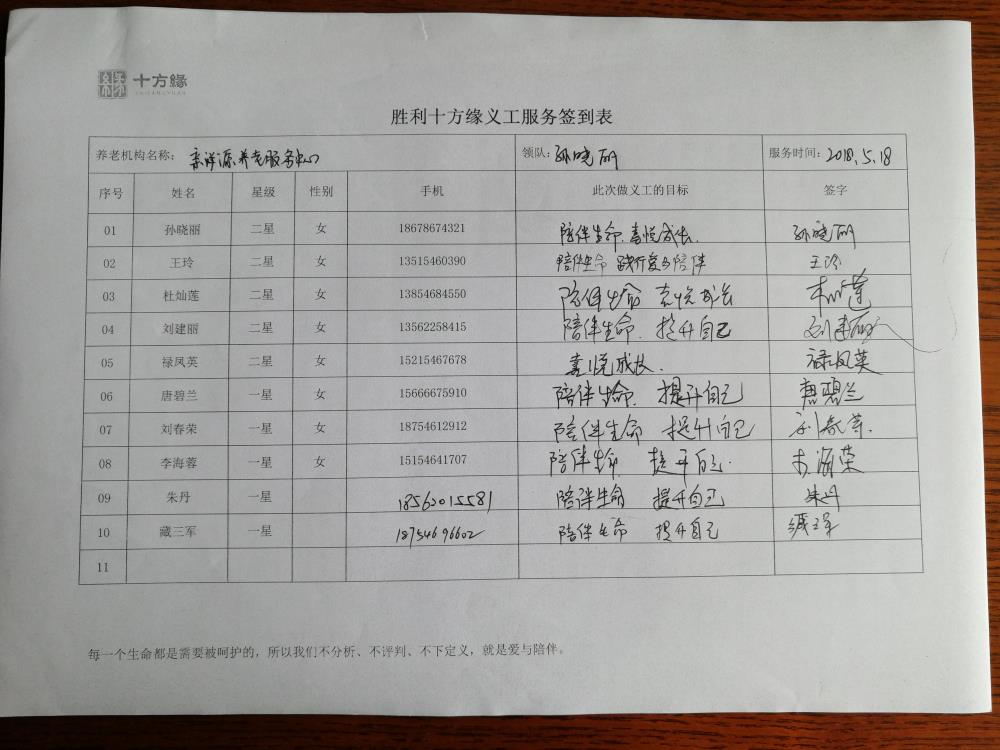 十方缘
SHIFANGYUAN
胜利十方缘义工服务签到表
养老机构名称： 祥源养老服务中心 领队：孙晓丽 服务时间：2018.5.18
序号 姓名 星级 性别 手机 此次做义工的目标 签字
01 孙晓丽 二星 女 18678674321 陪伴生命.喜悦成长. 孙晓丽
02 王玲 二星 女 13515460390 陪伴生命 践行爱与陪伴 王玲
03 杜灿莲 二星 女 13854684550 陪伴生命 喜悦成长 杜灿莲
04 刘建丽 二星 女 13562258415 陪伴生命. 提升自己 刘建丽
05 禄凤英 二星 女 15215467678 喜悦成长. 禄凤英
06 唐碧兰 一星 女 15666675910 陪伴生命. 提升自己 唐碧兰
07 刘春荣 一星 女 18754612912 陪伴生命 提升自己 刘春荣.
08 李海蓉 一星 女 15154641707 陪伴生命 提升自己. 李海荣
09 朱丹 一星 18562015581 陪伴生命 提升自己 朱丹
10 藏三军 一星 18754696602 陪伴生命 提升自己 藏三军
11
每一个生命都是需要被呵护的，所以我们不分析、不评判、不下定义，就是爱与陪伴。